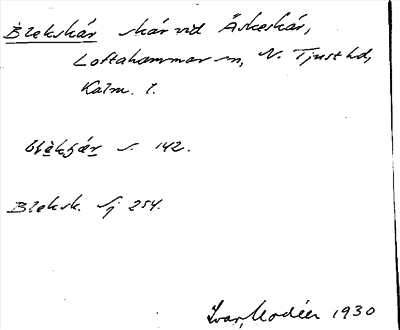 Blekskär skär vid Äskeskär,
Loftahammar sn, N. Tjust hd,
Kalm. l.
s. 142.
Bleksk. Sj 254.
Ivar Modéer 1930